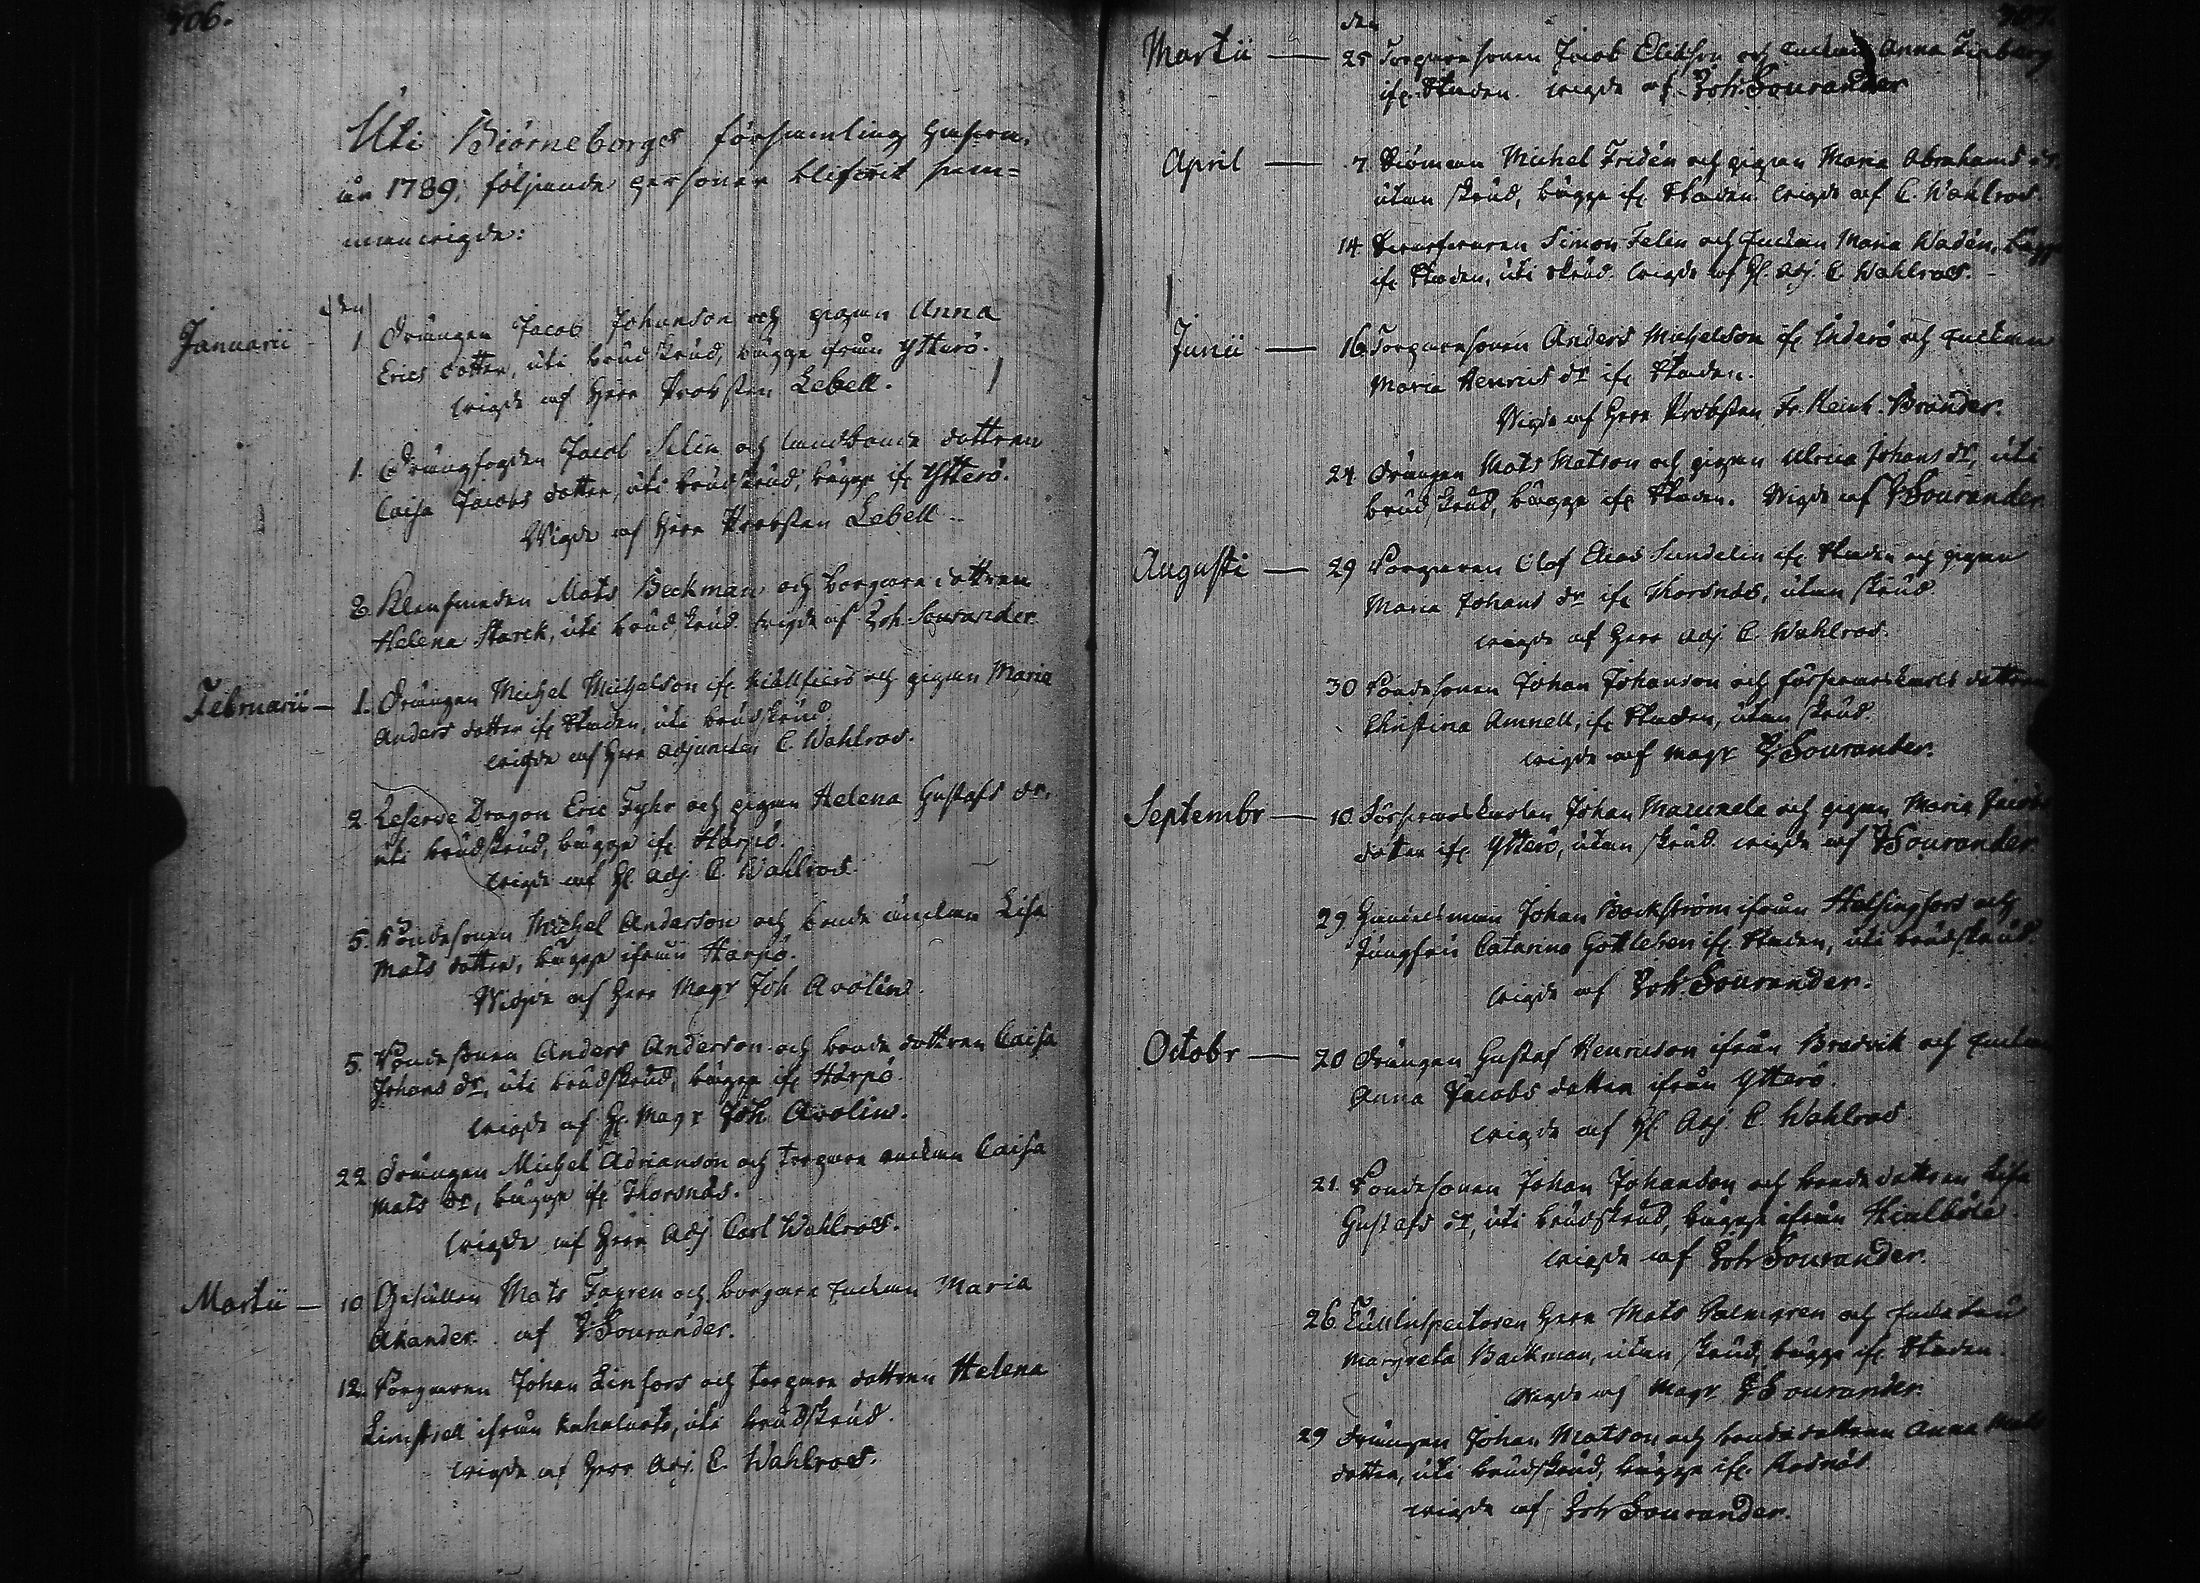 406.
Uti Biörneborgs församling hafwa,
år 1789, följande personer blifwit sam-
manwigde:
den
Januarii 1 Drängen Jacob Johanson och pigan Anna
Erics dotter, uti brudskrud, bägge från Ytterö.
wigde af Herr Probsten Lebell.
1. Drängfogden Jacob Selin och landbonde dottren
Caisa Jacobs dotter, uti brudskrud, bägge ifr. Ytterö.
Wigde af Herr Probsten Lebell
2. Klensmeden Mats Beckman och borgare dottren
Helena Starck, uti brudskrud wigde af Joh. Sourander
Februarii — 1. Drängen Michel Michelson ifr. och pigan Maria
Anders dotter ifr Staden, uti brudskrud.
wigde af Herr Adjuncten C. Wahlroos.
2 Reserve Dragon Eric Fyhr och pigan Helena Gustafs dr,
uti brudskrud, bägge ifr. Harpö.
wigde af Hr. Adj. C. Wahlroos.
5. Bondesonen Michel Anderson och bonde änckan Lisa
Mats dotter, bägge ifrån Harpö.
Wigde af Herr Magr Joh Arolin
5. Bondesonen Anders Anderson och bonde dottren Caisa
Johans dr, uti brudskrud, bägge ifr. Harpö
wigde af Hr. Magr Joh. Arolin.
22 Drängen Michel Adrianson och torpare enckan Caisa
Mats dr, bägge ifr. Thorsnäs.
wigde af Herr Adj Carl Wahlroos.
Martii — 10 Gesällen Mats Fagren och borgare Enckan Maria
Akander. af J Sourander.
12. Borgaren Johan Linfors och torpare dottren Helena
ifrån Kahaluoto, uti brudskrud.
wigde af Herr Adj. C. Wahlroos.
407.
den
Martii — 25 Torparesonen Jacob och Enckan Anna
ifr. Staden. wigde af Joh. Sourander
April — 7. Siöman Michel Fridén och pigan Maria Abrahams dr,
utan skrud, bägge ifr Staden wigde af C. Wahlroos.
14. Simon Felin och Enckan Maria Wadén, bägge
ifr Staden, uti skrud wigde af Hr. Adj. C. Wahlroos.
Junii — 16 Torparesonen Anders Michelson ifr Inderö och Enckan
Maria Henrics dr ifr Staden.
Wigde af Herr Probsten Fr. Reinh. Brander.
24 Drängen Mats Matson och pigan Ulrica Johans dr, uti
brudskrud, bägge ifr Staden. Wigde af J Sourander.
Augusti — 29 Borgaren Olof Elias Sundelin ifr Staden och pigan
Maria Johans dr ifr Thorsnäs, utan skrud
wigde af Herr Adj. C. Wahlroos.
30 Bondesonen Johan Johanson och försvarskarls dottren
Christina Amnell, ifr Staden, utan skrud.
wigde af Magr J Sourander.
Septembr — 10. Försvarskarlen Johan och pigan Maria Jacobs
dotter ifr Ytterö, utan skrud wigde af J Sourander
29. Handelsman Johan Backström ifrån Helsingfors och
Jungfru Catarina Gottleben ifr. Staden, uti brudskrud.
wigde af Joh. Sourander.
Octobr — 20 Drängen Gustaf Henricson ifrån Brædvik och Enckan
Anna Jacobs dotter ifrån Ytterö.
wigde af Hr Adj C. Wahlroos
21. Bondesonen Johan Johanson och bonde dottren Lisa
Gustafs dr, uti brudskrud, bägge ifrån Hialböle.
wigde af Joh Sourander.
26 Tullinspectoren Herr Mats Palmgren och Enckefru
Margreta Backman, utan skrud, bägge ifr. Staden.
wigde af Magr J Sourander.
29 Drängen Johan Matson och bondedottren Anna Mats
dotter, uti brudskrud, bägge ifr.
wigde af Joh Sourander.